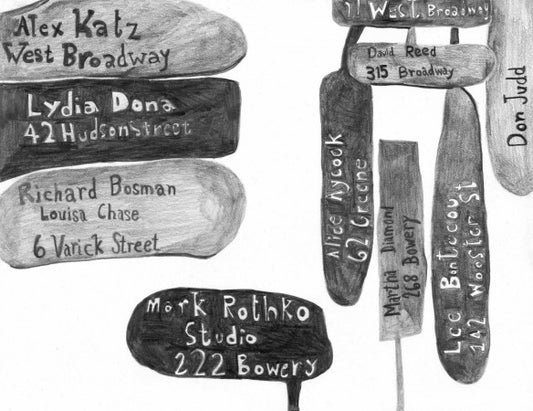 Alex Katz
West Broadway
Lydia Dona
42 Hudson Street
Richard Bosman
Louisa Chase
6 Varick Street
Mark Rothko
Studio
222 Bowery
West Broadway
David Reed
315 Broadway
Alice Aycock
62 Greene
Martha Diamond
268 Bowery
Lee Bontecou
142 Wooster St
Don Judd